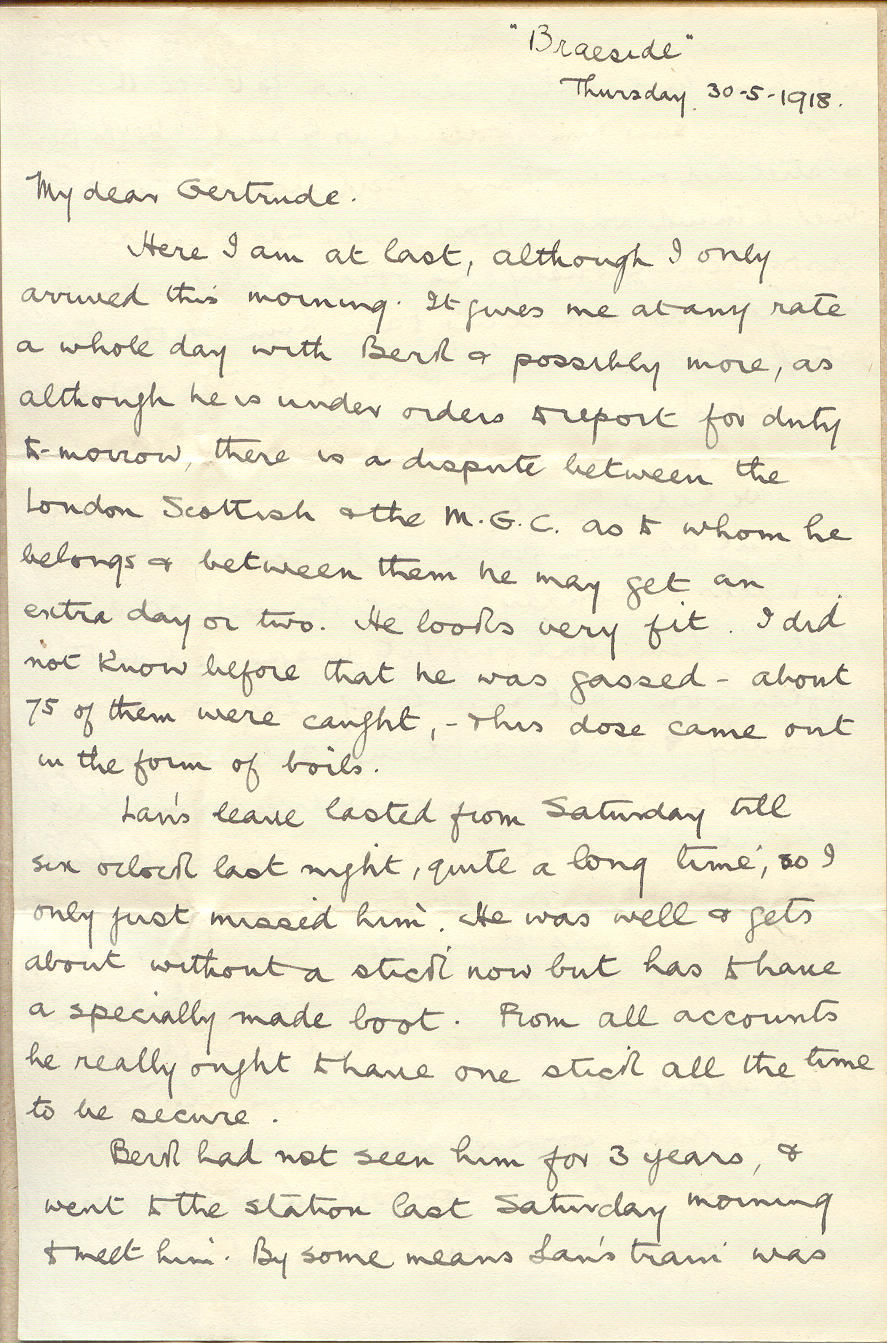 "Braeside"
Thursday. 30-5-1918.
My dear Gertrude.
Here I am at last, although I only
arrived this morning. It gives me at any rate
a whole day with Berk & possibly more, as
although he is under orders to report for duty
to-morrow, there is a dispute between the
London Scottish & the M.G.C. as to whom he
belongs & between them he may get an
extra day or two. He looks very fit. I did
not know before that he was gassed - about
75 of them were caught, - & his dose came out
in the form of boils.
Ian's leave lasted from Saturday till
six oclock last night, quite a long time, so I
only just missed him. He was well & gets
about without a stick now but has to have
a specially made boot. From all accounts
he really ought to have one stick all the time
to be secure.
Berk had not seen him for 3 years, &
went to the station last Saturday morning
to meet him. By some means Ian's train was